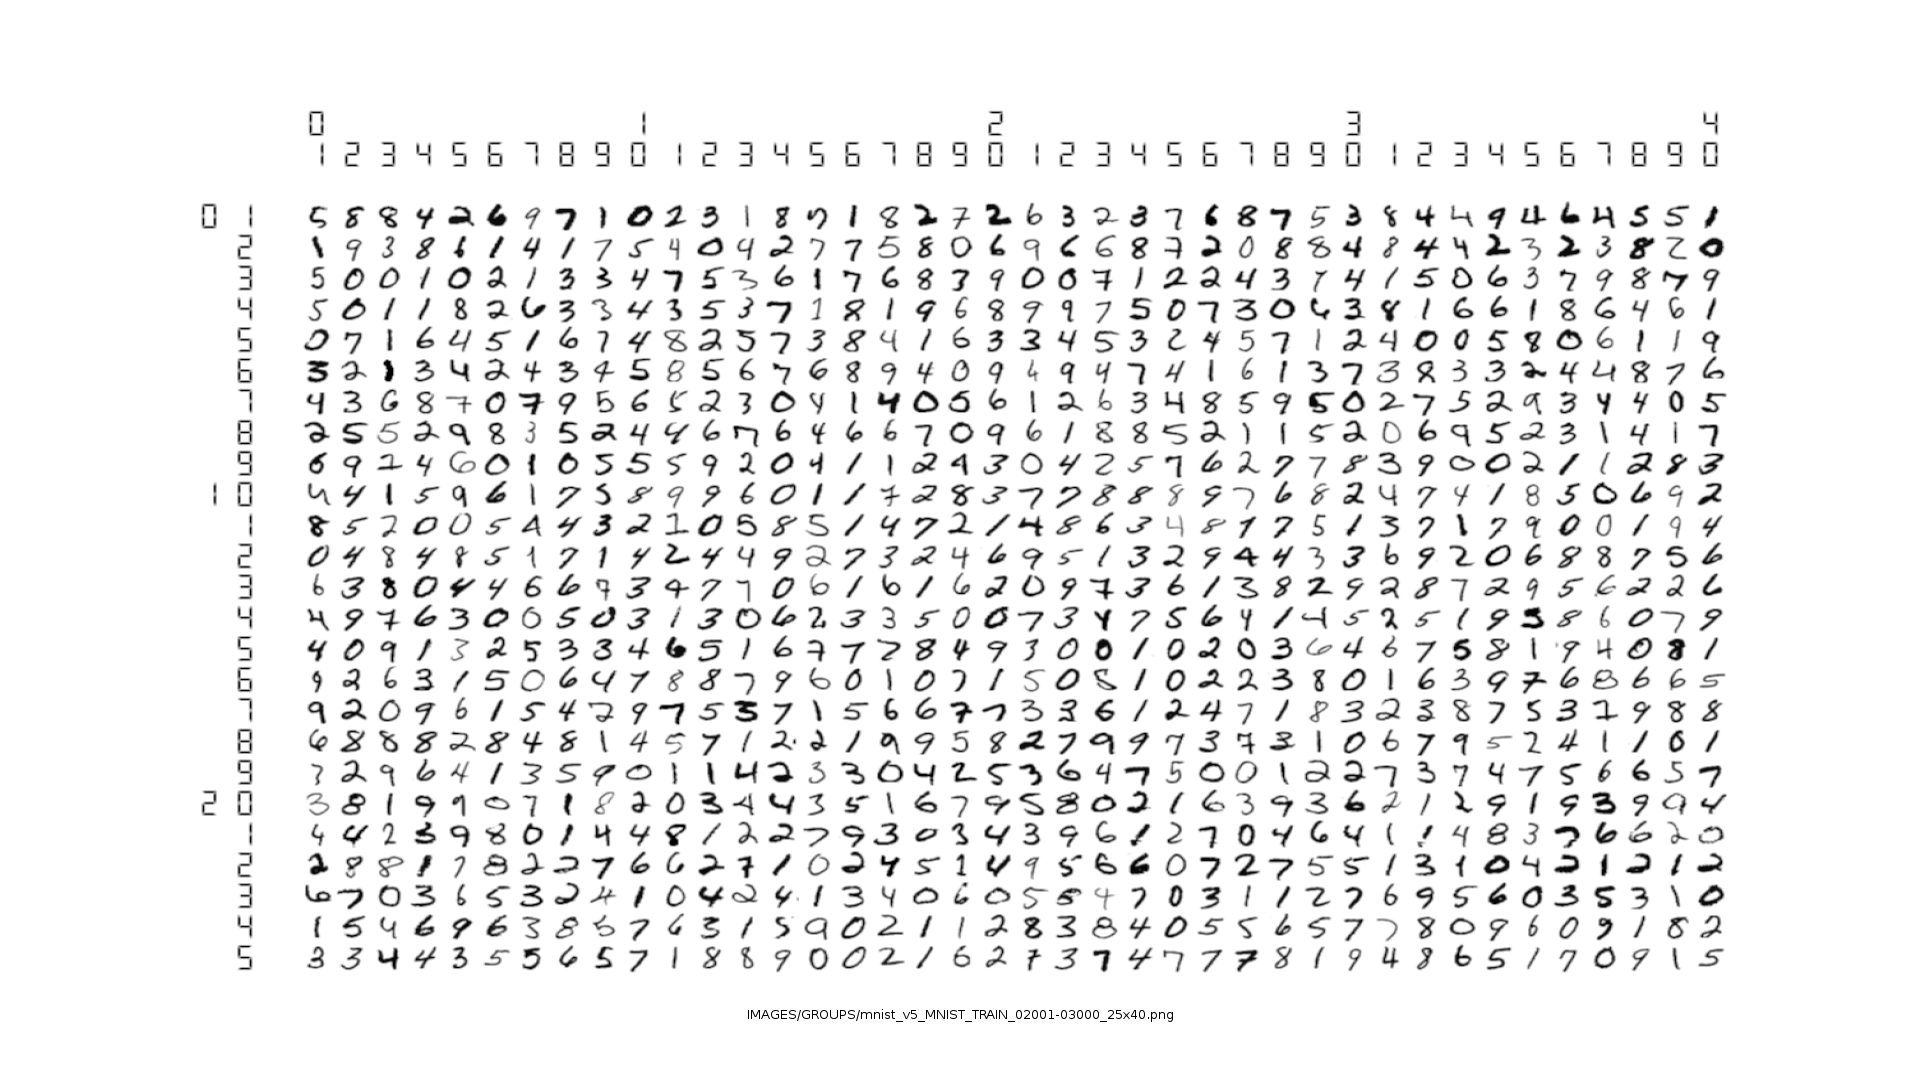 0 1 2 3 4
1 2 3 4 5 6 7 8 9 0 1 2 3 4 5 6 7 8 9 0 1 2 3 4 5 6 7 8 9 0 1 2 3 4 5 6 7 8 9 0
0 1 5 8 8 4 2 6 9 7 1 0 2 3 1 8 7 1 8 2 7 2 6 3 2 3 7 6 8 7 5 3 8 4 4 9 4 6 4 5 5 1
2 1 9 3 8 1 1 4 1 7 5 4 0 4 2 7 7 5 8 0 6 9 6 6 8 7 2 0 8 8 4 8 4 4 2 3 2 3 8 2 0
3 5 0 0 1 0 2 1 3 3 4 7 5 3 6 1 7 6 8 3 9 0 0 7 1 2 2 4 3 7 4 1 5 0 6 3 7 9 8 7 9
4 5 0 1 1 8 2 6 3 3 4 3 5 3 7 1 8 1 9 6 8 9 9 7 5 0 7 3 0 6 3 8 1 6 6 1 8 6 4 6 1
5 0 7 1 6 4 5 1 6 7 4 8 2 5 7 3 8 4 1 6 3 3 4 5 3 2 4 5 7 1 2 4 0 0 5 8 0 6 1 1 9
6 3 2 1 3 4 2 4 3 4 5 8 5 6 7 6 8 9 4 0 9 6 9 4 7 4 1 6 1 3 7 3 8 3 3 2 4 4 8 7 6
7 4 3 6 8 7 0 7 9 5 6 5 2 3 0 4 1 4 0 5 6 1 2 6 3 4 8 5 9 5 0 2 7 5 2 9 3 4 4 0 5
8 2 5 5 2 9 8 3 5 2 4 4 6 7 6 4 6 6 7 0 9 6 1 8 8 5 2 1 1 5 2 0 6 9 5 2 3 1 4 1 7
9 6 9 2 4 6 0 1 0 5 5 5 9 2 0 4 1 1 2 9 3 0 4 2 5 7 6 2 7 7 8 3 9 0 0 2 1 1 2 8 3
1 0 4 4 1 5 9 6 1 7 5 8 9 9 6 0 1 1 7 2 8 3 7 7 8 8 8 9 7 6 8 2 4 7 4 1 8 5 0 6 9 2
1 8 5 2 0 0 5 4 4 3 2 1 0 5 8 5 1 4 7 2 1 4 8 6 3 4 8 7 7 5 1 3 7 1 7 9 0 0 1 9 4
2 0 4 8 4 8 5 1 7 1 4 2 4 4 9 2 7 3 2 4 6 9 5 1 3 2 9 4 4 3 3 6 9 2 0 6 8 8 7 5 6
3 6 3 8 0 4 4 6 6 9 3 4 7 7 0 6 1 6 1 6 2 0 9 7 3 6 1 3 8 2 9 2 8 7 2 9 5 6 2 2 6
4 4 9 7 6 3 0 0 5 0 3 1 3 0 6 2 3 3 5 0 0 7 3 4 7 5 6 4 1 4 5 2 5 1 9 5 8 6 0 7 9
5 4 0 9 1 3 2 5 3 3 4 6 5 1 6 7 7 2 8 4 9 3 0 0 1 0 2 0 3 6 4 6 7 5 8 1 9 4 0 8 1
6 9 2 6 3 1 5 0 6 4 7 8 8 7 9 6 0 1 0 7 1 5 0 8 1 0 2 2 3 8 0 1 6 3 9 7 6 8 6 6 5
7 9 2 0 9 6 1 5 4 2 9 7 5 3 7 1 5 6 6 7 7 3 3 6 1 2 4 7 1 8 3 2 3 8 7 5 3 7 9 8 8
8 6 8 8 8 2 8 4 8 1 4 5 7 1 2 2 1 9 9 5 8 2 7 9 9 7 3 7 3 1 0 6 7 9 5 2 4 1 1 0 1
9 3 2 9 6 4 1 3 5 9 0 1 1 4 2 3 3 0 4 2 5 3 6 4 7 5 0 0 1 2 2 7 3 7 4 7 5 6 6 5 7
2 0 3 8 1 9 9 0 7 1 8 2 0 3 4 4 3 5 1 6 7 9 5 8 0 2 1 6 3 9 3 6 2 1 2 9 1 9 3 9 9 4
1 4 4 2 3 9 8 0 1 4 4 8 1 2 2 7 9 3 0 3 4 3 9 6 1 2 7 0 4 6 4 1 1 4 8 3 7 6 6 2 0
2 2 8 8 1 7 8 2 2 7 6 6 2 7 1 0 2 4 5 1 4 9 5 6 6 0 7 2 7 5 5 1 3 1 0 4 2 1 2 1 2
3 6 7 0 3 6 5 3 2 4 1 0 4 2 4 1 3 4 0 6 0 5 5 4 7 0 3 1 1 2 7 6 9 5 6 0 3 5 3 1 0
4 1 5 4 6 9 6 3 8 5 7 6 3 1 5 9 0 2 1 1 2 8 3 8 4 0 5 5 6 5 7 7 8 0 9 6 0 9 1 8 2
5 3 3 4 4 3 5 5 6 5 7 1 8 8 9 0 0 2 1 6 2 7 3 7 4 7 7 7 8 1 9 4 8 6 5 1 7 0 9 1 5
IMAGES/GROUPS/mnist_v5_MNIST_TRAIN_02001-03000_25x40.png